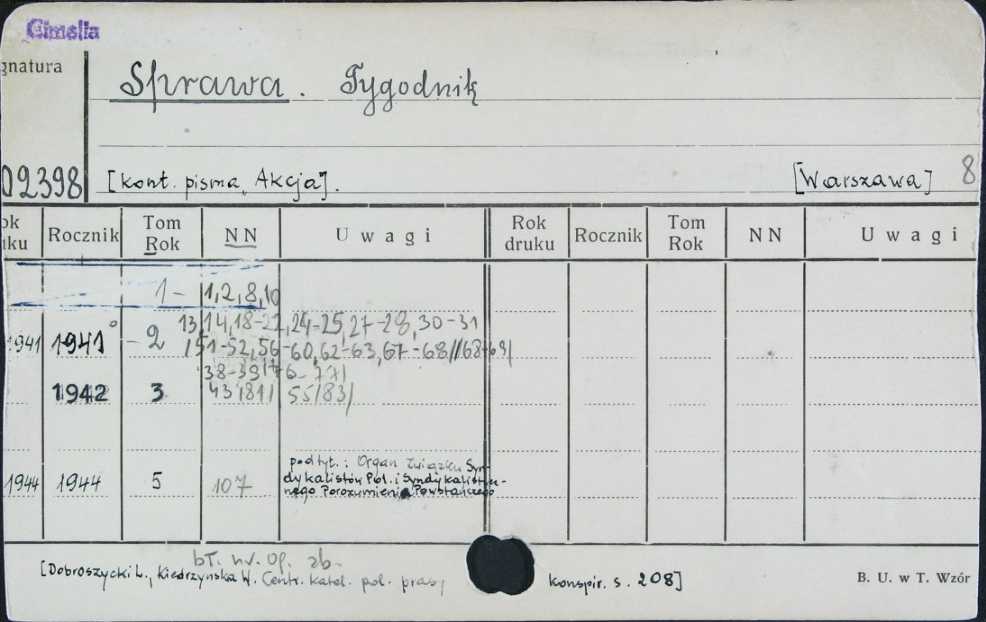 Cimelia
gnatura
Sprawa. Tygodnik
02398
[kont. pisma „Akcja].
[Warszawa] 8
ok
uku
Rocznik
Tom
Rok
NN
Uwagi
Rok
druku
Rocznik
Tom
Rok
NN
Uwagi
1 - 1,2,8,10
13,14,18-22,24-25,27-28,30-31
1941 1941 - 2 /51-52,56-60,62-63,67-68//68-69/
38-39/76-77/
1942 3 43/81/ 55/83/
podtyt.: Organ Związku Syn-
dykalistów Pol. i Syndykalistycz-
nego Porozumienia Powstańczego
1944 1944 5 107
bł. nr. op. zb.
[Dobroszycki L., Kiedrzyńska W. Centr. katal. pol. prasy konspir. s. 208]
B. U. w T. Wzór